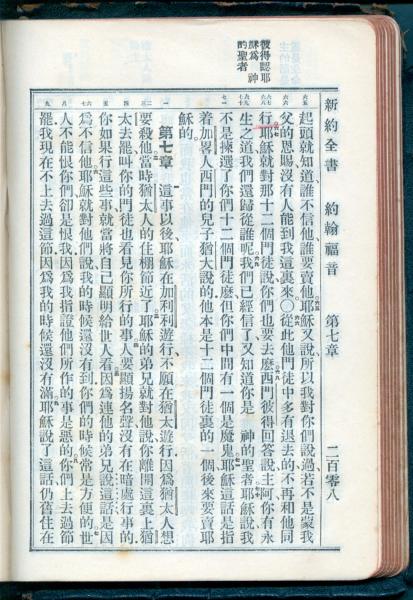 彼得認耶
穌爲 神
的聖者
新約全書 約翰福音 第七章 二百零八
六五 六六 六七 六八 六九 七十 七一
起頭就知道誰不信他誰要賣他耶穌又說所以我對你們說過若不是蒙我
父的恩賜沒有人能到我這裏來〇從此他門徒中多有退去的不再和他同
行耶穌就對那十二個門徒說你們也要去麽西門彼得回答說主阿你有永
生之道我們還歸從誰呢我們已經信了又知道你是 神的聖者耶穌說我
不是揀選了你們十二個門徒麽但你們中間有一個是魔鬼耶穌這話是指
着加畧人西門的兒子猶大說的他本是十二個門徒裏的一個後來要賣耶
穌的
第七章 這事以後耶穌在加利利遊行不願在猶太遊行因爲猶太人想
要殺他當時猶太人的住棚節近了耶穌的弟兄就對他說你離開這裏上猶
太去罷叫你的門徒也看見你所行的事人要顯揚名聲沒有在暗處行事的
你如果行這些事就當將自己顯明給世人看因爲連他的弟兄說這話是因
爲不信他耶穌就對他們說我的時候還沒有到你們的時候常是方便的世
人不能恨你們卻是恨我因爲我指證他們所作的事是惡的你們上去過節
罷我現在不上去過這節因爲我的時候還沒有滿耶穌說了這話仍舊住在